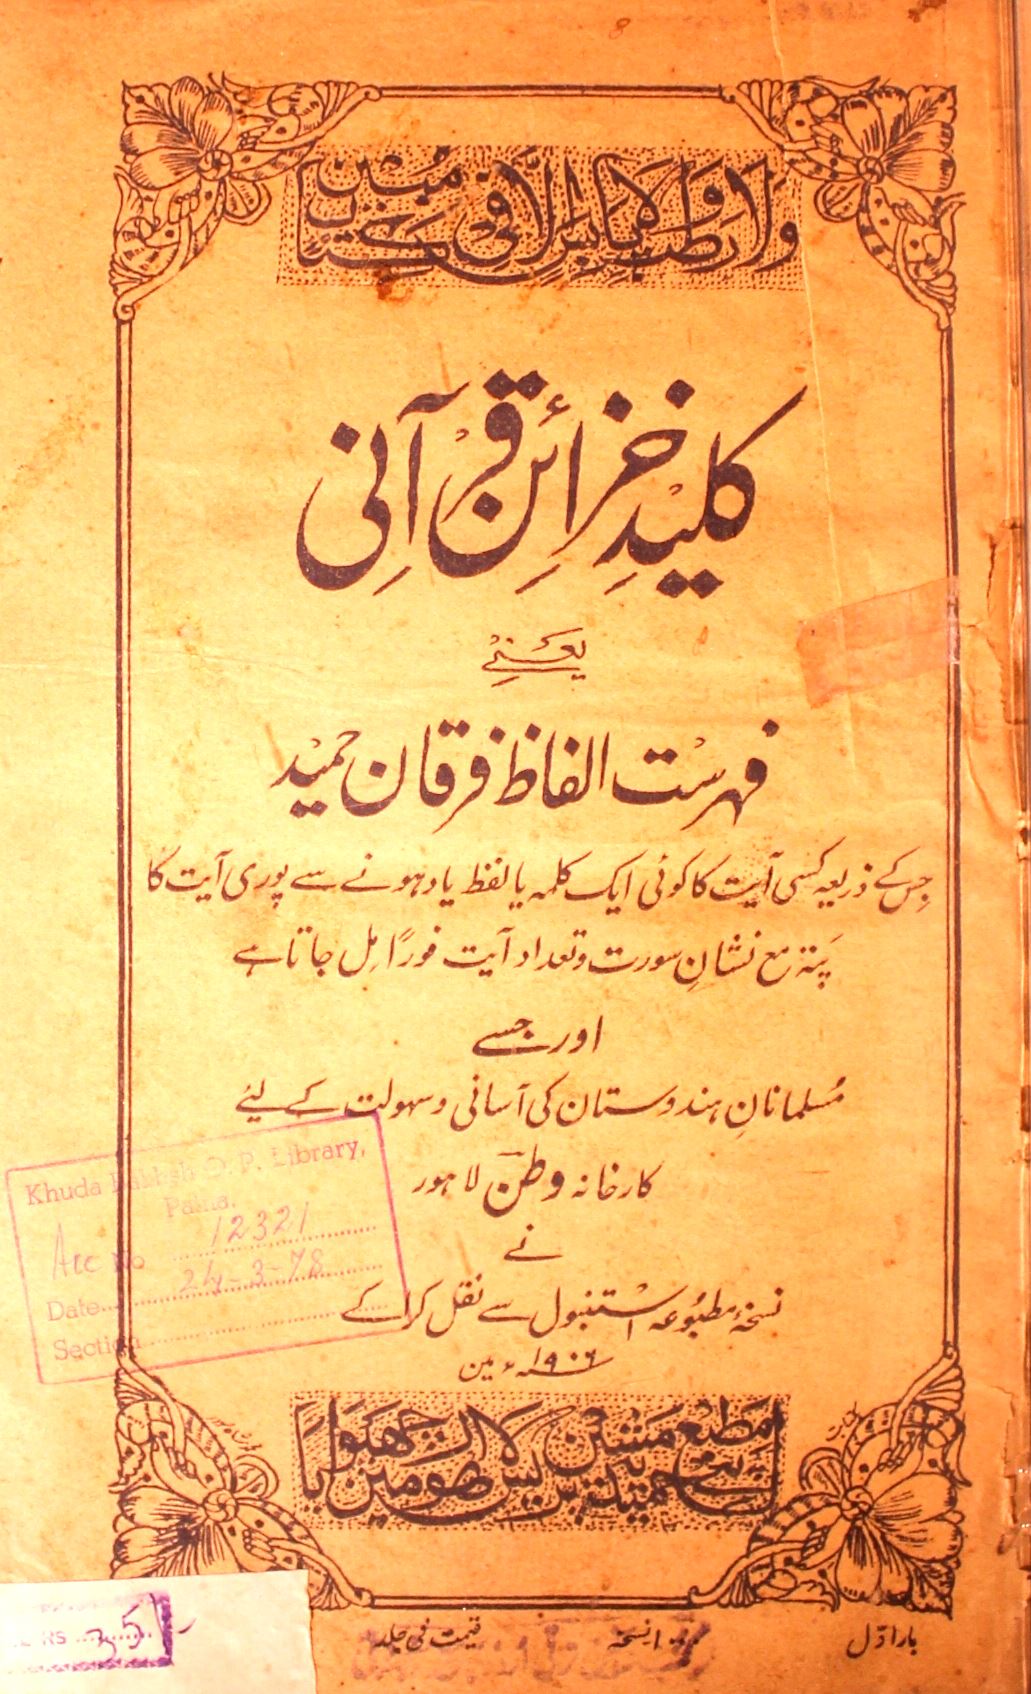 ولا رطب ولا یابس الا فی کتاب مبین
کلیدِ خزائنِ قرآنی
یعنے
فہرست الفاظ فرقان حمید
جس کے ذریعہ کسی آیت کا کوئی ایک کلمہ یا لفظ یاد ہونے سے پوری آیت کا
پتہ مع نشانِ سورت و تعداد آیت فورًا مِل جاتا ہے
اور جسے
مُسلمانانِ ہندوستان کی آسانی و سہولت کے لیئے
کارخانہ وطن لاہور
نے
نسخۂ مطبُوعہ استنبول سے نقل کرا کے
۱۹۰۶ء مین
مطبع مشین پریس لاہور مین چھپوایا
بار اوّل
نسخہ
قیمت فی جلد
Khuda Bakhsh O. P. Library,
Patna.
Acc No 12321
Date 24-3-78
Section
35